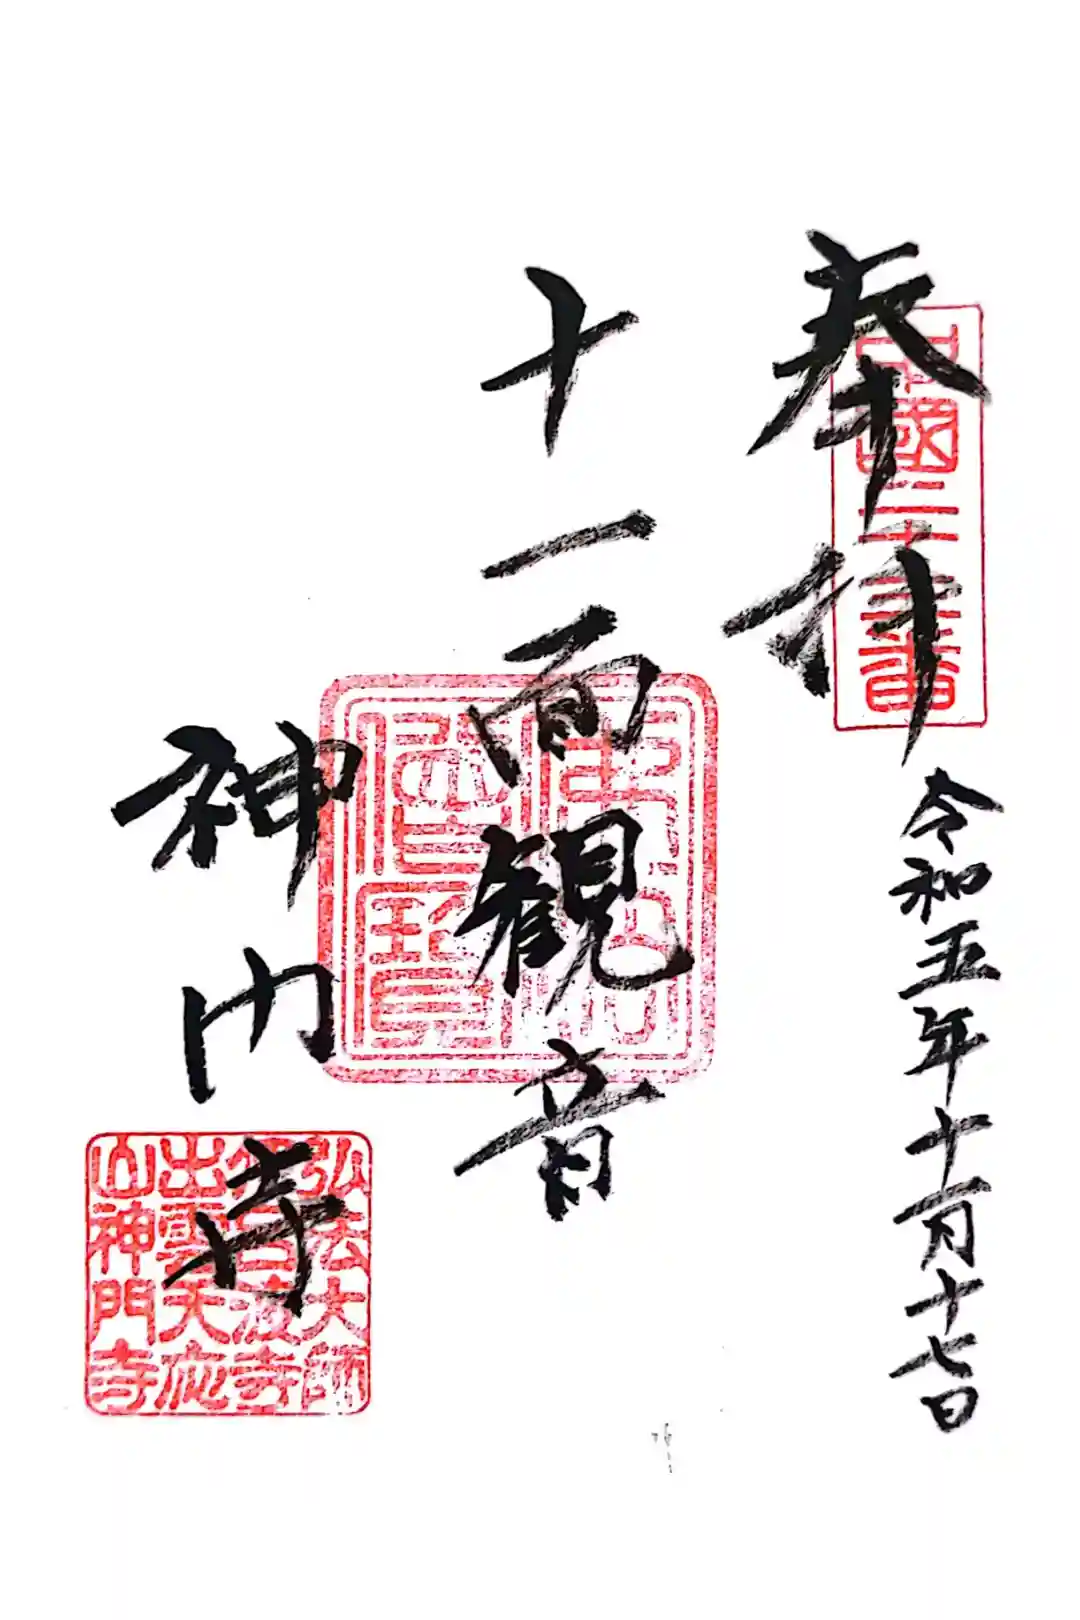 中國二十三番
奉拝
令和五年十一月十七日
十一面観音
佛法僧寳
神門寺
弘法大師
呂波寺
出雲天應
山神門寺